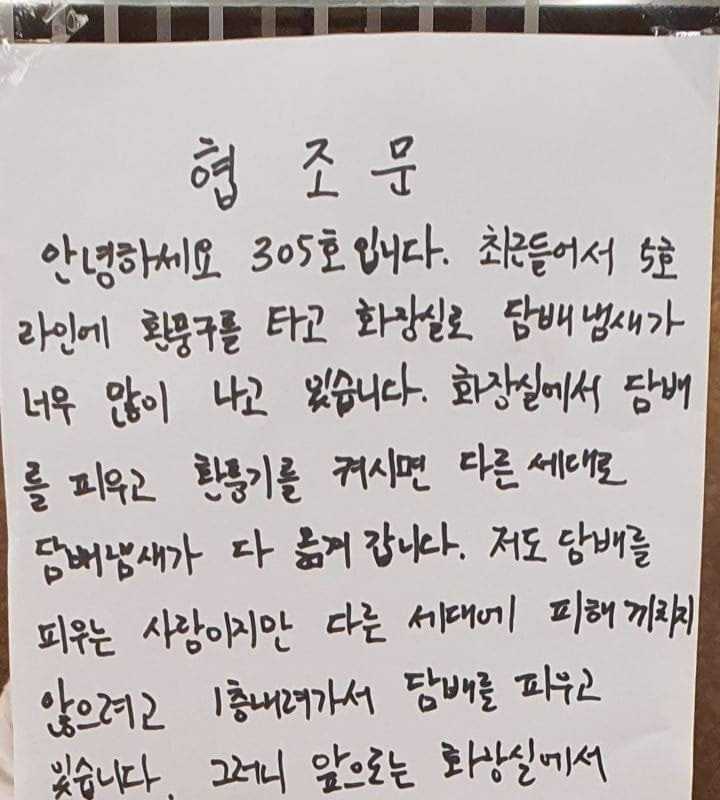 협 조 문
안녕하세요 305호입니다. 최근들어서 5호
라인에 환풍구를 타고 화장실로 담배냄새가
너무 많이 나고 있습니다. 화장실에서 담배
를 피우고 환풍기를 켜시면 다른 세대로
담배냄새가 다 옮겨 갑니다. 저도 담배를
피우는 사람이지만 다른 세대에 피해 끼치지
않으려고 1층내려가서 담배를 피우고
있습니다. 그러니 앞으로는 화장실에서